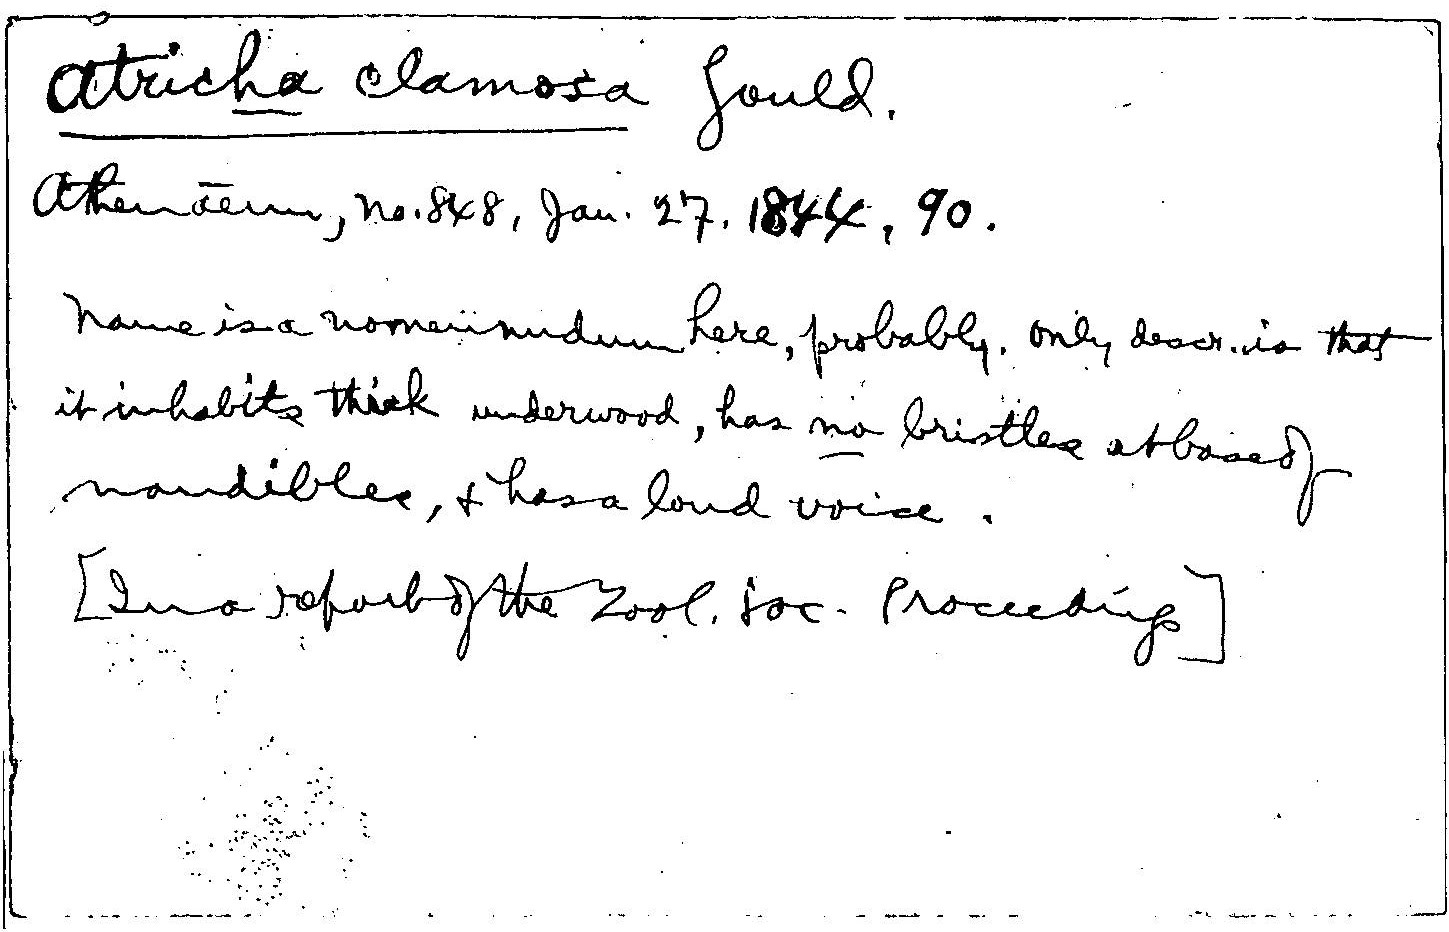 Atricha clamosa Gould.
Athenaeum, No. 848, Jan. 27. 1844, 90.
Name is a nomen nudum here, probably. Only descr. is that
it inhabits thick underwood, has no bristles at base of
mandibles, & has a loud voice.
[In a report of the Zool. Soc. Proceedings]